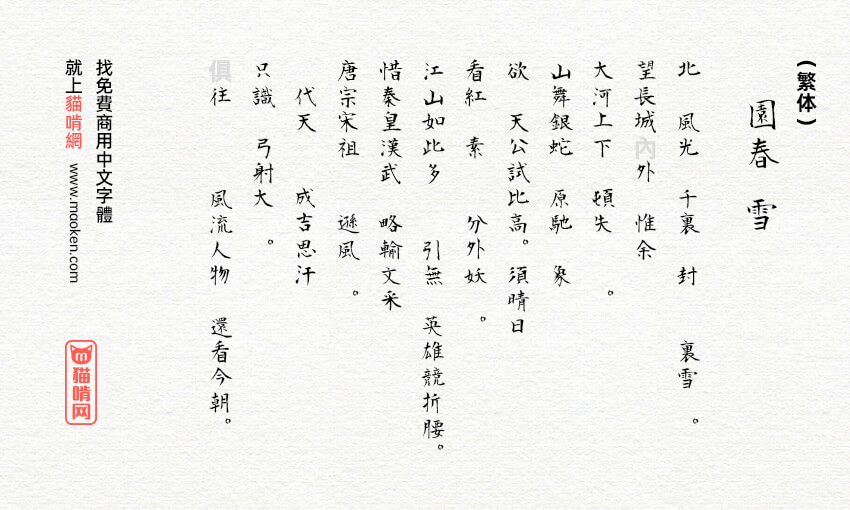 （繁体）
園春 雪
北 風光 千裏 封 裏雪 。
望長城內外 惟余
大河上下 頓失 。
山舞銀蛇 原馳 象
欲 天公試比高。須晴日
看紅 素 分外妖 。
江山如此多 引無 英雄競折腰。
惜秦皇漢武 略輸文采
唐宗宋祖 遜風 。
代天 成吉思汗
只識 弓射大 。
俱往 風流人物 還看今朝。
找免費商用中文字體
就上貓啃網 www.maoken.com
貓啃网